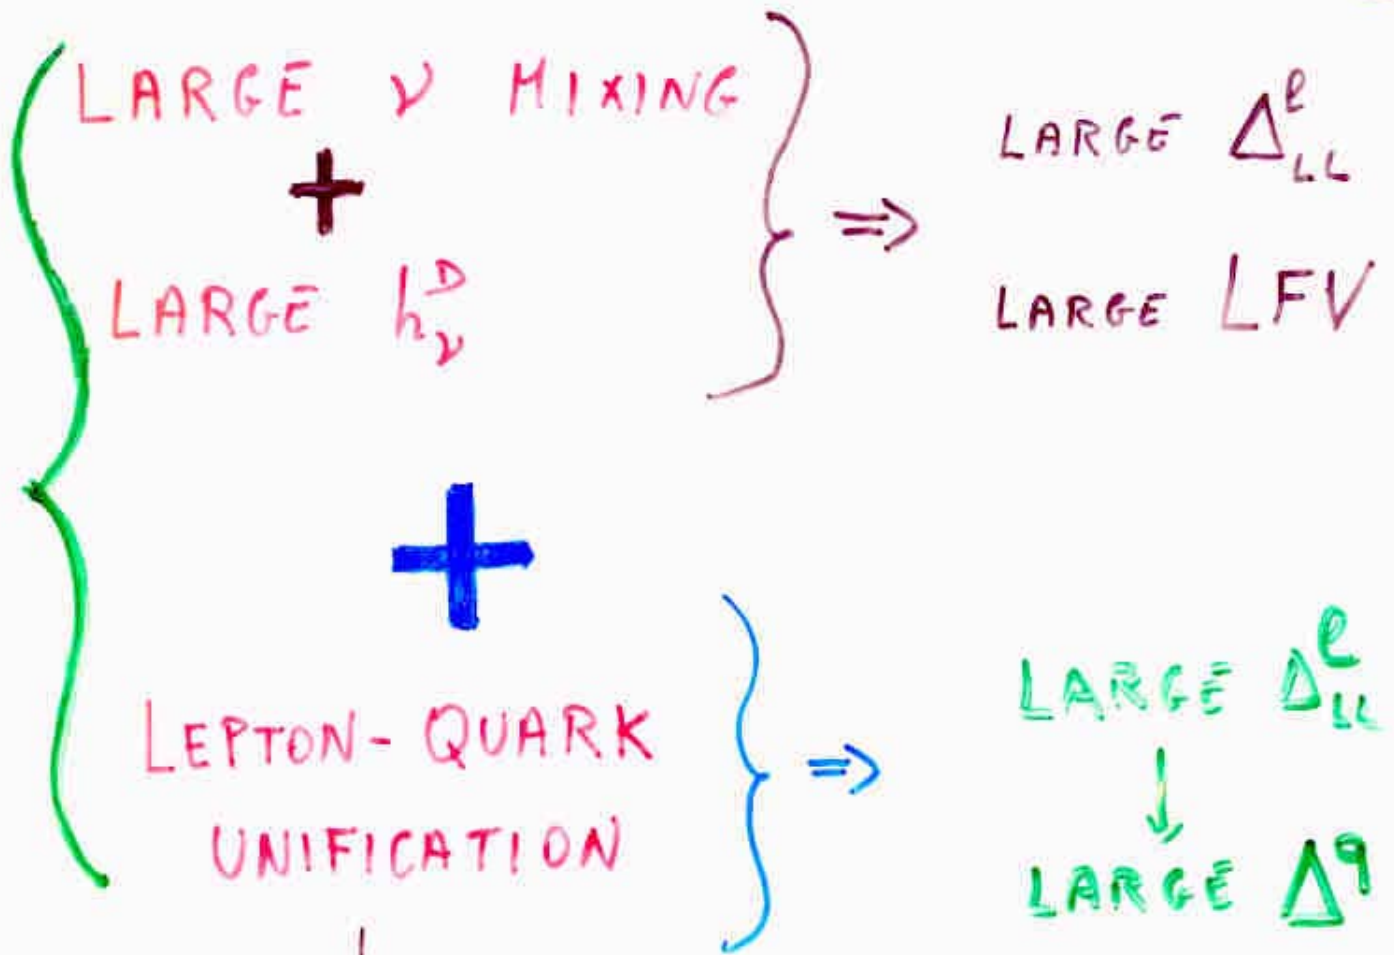 LARGE ν MIXING
+
LARGE h_ν^D
⇒
LARGE Δ^ℓ_LL
LARGE LFV
+
LEPTON-QUARK
UNIFICATION
⇒
LARGE Δ^ℓ_LL
↓
LARGE Δ^q